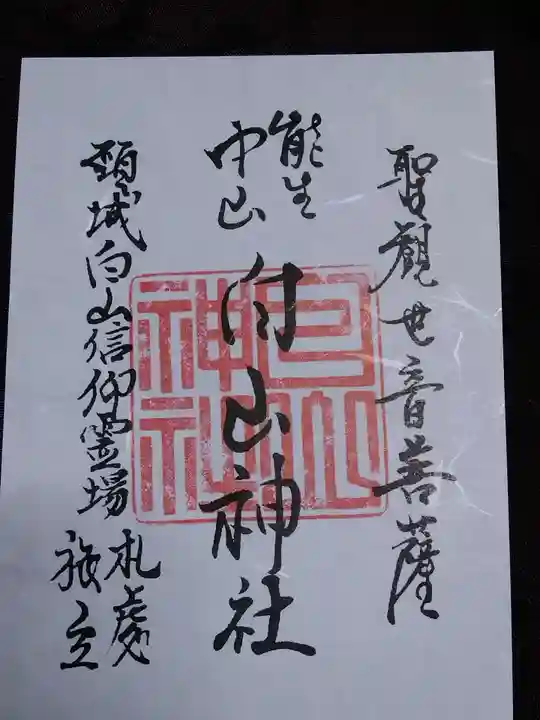 聖観世音菩薩
能生
中山
白山神社
頸城白山信仰霊場
札處
白山
神社